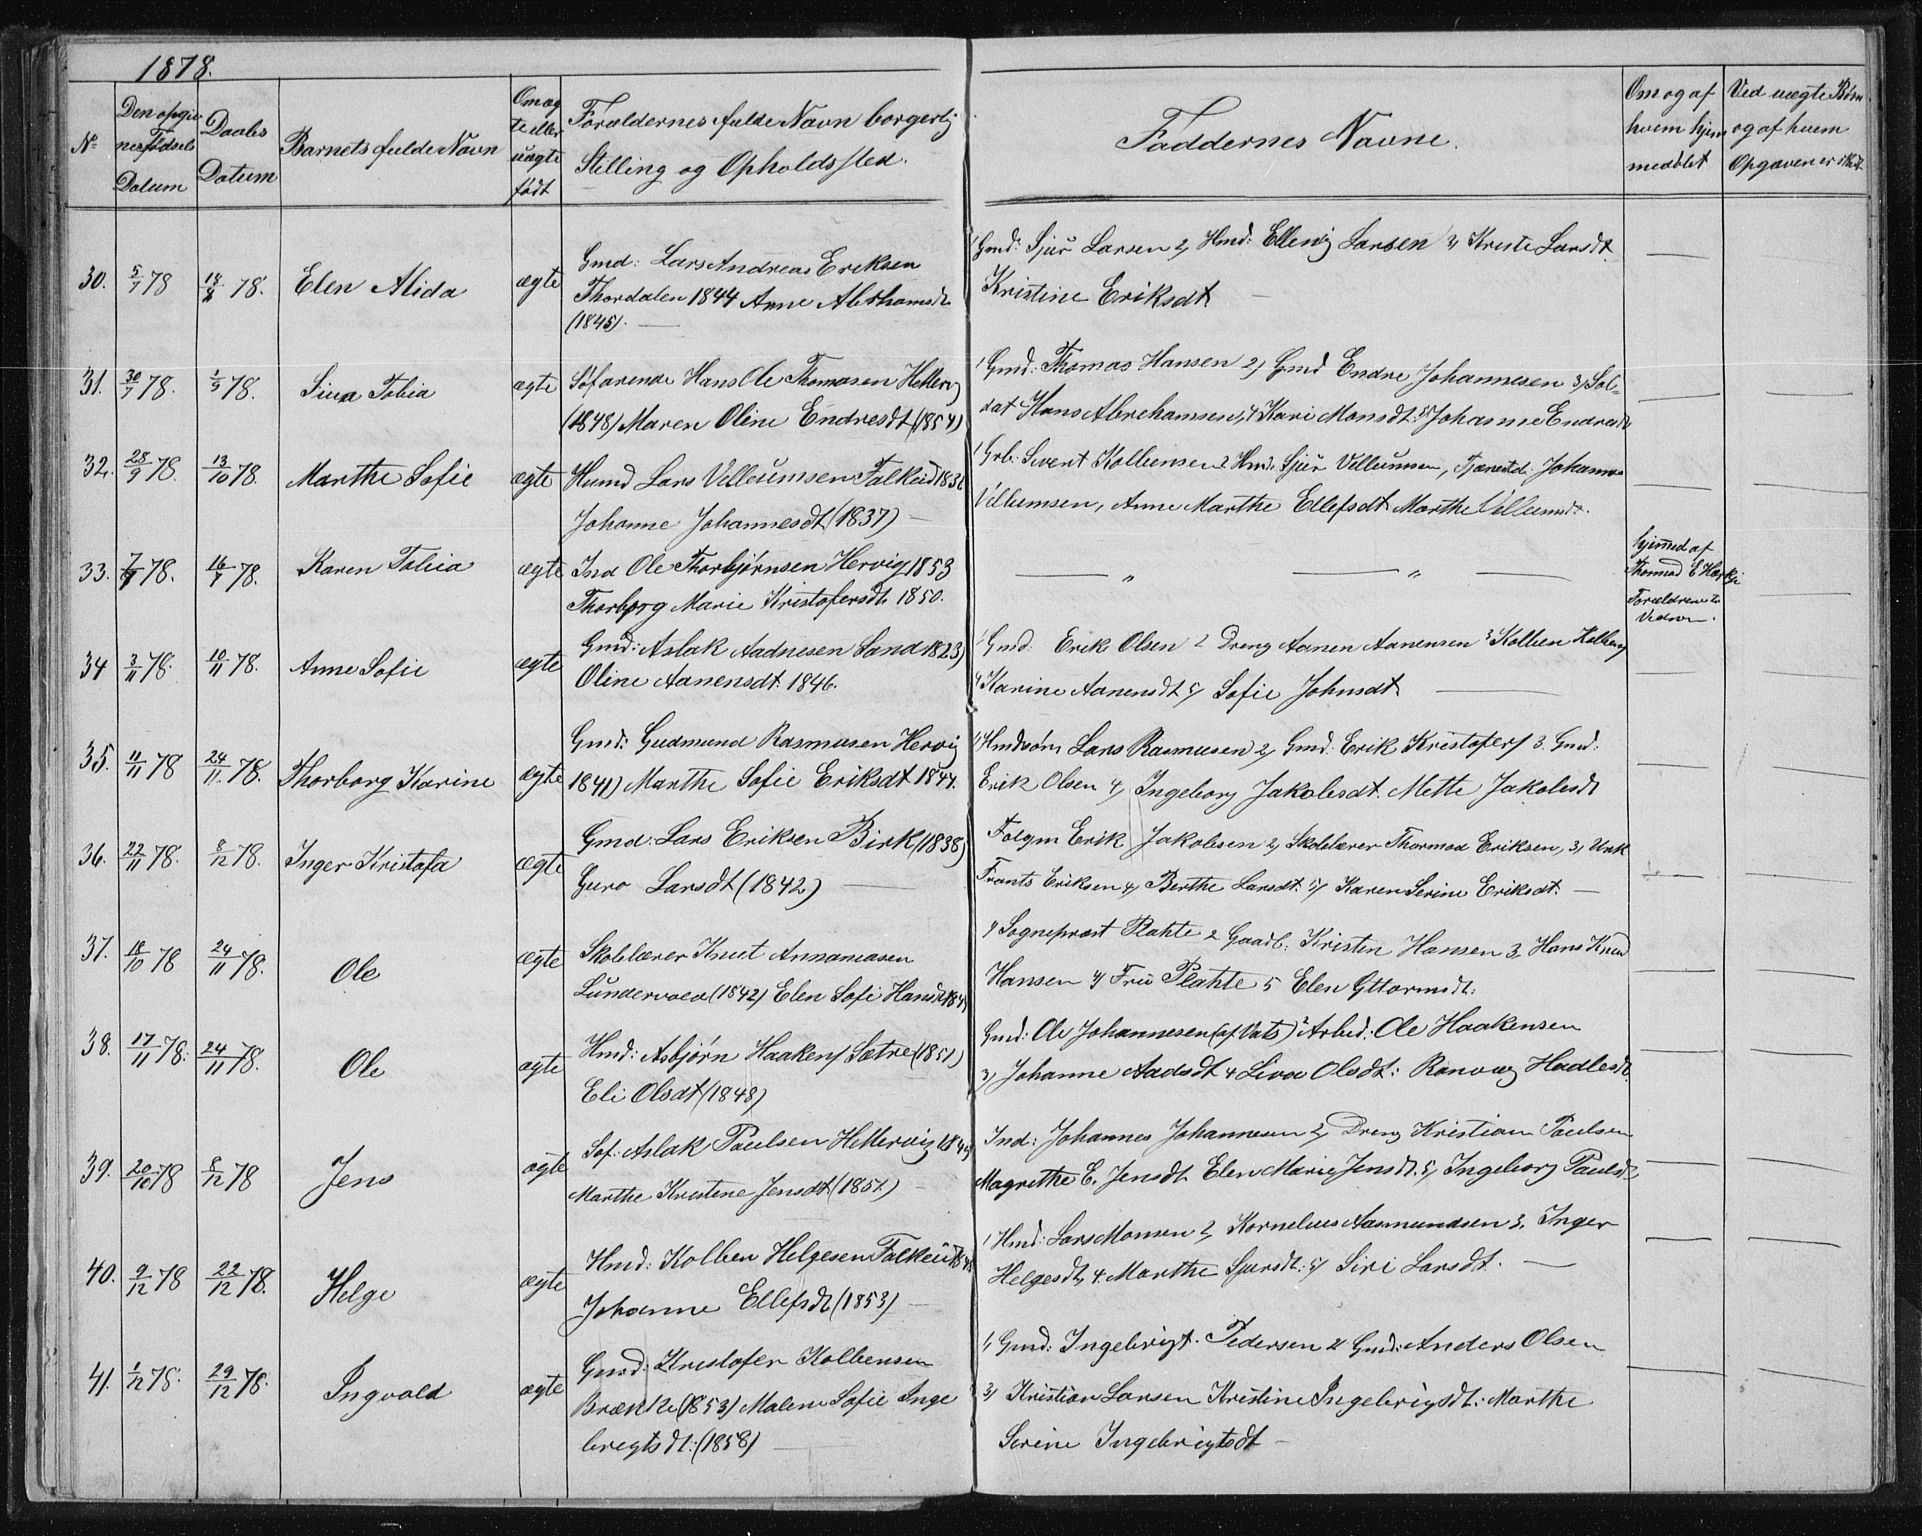 1878.
No
Den opgivne Fødsels Datum
Daabs Datum
Barnets fulde Navn
Om ægte eller uægte født
Forældernes fulde Navn borgerlig Stilling og Opholdssted.
Faddernes Navne.
Om og af hvem hjemmedøbt
Ved uægte Børn og af hvem Opgaven er
30. 5/7 78 18/8 78. Elen Alida ægte
Gmd: Lars Andreas Eriksen
Thordalen 1844 Anne Abrhamsdt
(1845).
Gmd: Sjur Larsen 2, Hmd: Elleng Larsen 3, Kriste Larsdt
Kristine Eriksdt
31. 30/7 78. 1/9 78. Sina Tobia ægte
Søfarende Hans Ole Thomasen Hetterv
(1848) Maren Oline Endresdt (1854)
1 Gmd: Thomas Hansen 2, Gmd Endre Johannesen 3, Sol-
dat Hans Abrehamsen, 4 Kari Monsdt: 5, Johanne Endresdt
32. 28/9 78. 13/10 78. Marthe Sofie ægte
Husmd Lars Velleumsen Falkeid 1836
Johanne Johannesdt (1837) —
1 Grb: Sivert Kolbensen 2 Hmd: Sjur Villumsen, Tjenestd: Johannes
Villumsen, Anne Marthe Ellefsdt Marthe Villumsdt.
33. 7/6 78. 16/7 78. Karen Tolia ægte
Ind Ole Thorbjørnsen Hervig 1853
Thorborg Marie Kristofersdt. 1850.
— " — " —
hjemmed af
Thormod E
Forældrene
34 3/11 78. 10/11 78. Anne Sofie ægte
Gmd: Aslak Aadnesen Sand 1823)
Oline Aanensdt. 1846.
1 Gmd: Erik Olsen 2 Dreng Aanen Aanensen 3 Kolben Kolbens
4 Karine Aanensdt 5, Sofie Johnsdt —
35. 11/11 78 24/11. 78. Thorborg Karine ægte
Gmd: Gudmund Rasmusen Hervig
1841) Marthe Sofie Eriksdt 1844.
1 Hmdsøn Lars Rasmusen 2, Gmd: Erik Kristofers 3. Gmd:
Erik Olsen 4, Ingeborg Jakobsdt. Mette Jakobsdt
36. 22/11 78. 8/12 78. Inger Kristofa ægte
Gmd: Lars Eriksen Birk (1838)
Guro Larsdt (1842) —
Folgm Erik Jakobsen 2, Skolelærer Thormod Eriksen, 3, Unk
Frants Eriksen 4, Berthe Larsdt. 5, Karen Serine Eriksdt. —
37. 18/10 78 24/11 78. Ole ægte
Skolelærer Knut Annamasen
Lundervold (1842) Elen Sofi Hansdt 184
1 Sogneprest Plahte 2 Gaardb: Kristen Hansen 3, Hans Knud
Hansen 4, Fru Plahte 5 Elen Gttormsdt:
38. 17/11 78. 24/11 78. Ole ægte
Hmd: Asbjørn Haakens Sætre (1851)
Eli Olsdt (1848)
Gmd: Ole Johannesen (af Vats) 2 Arbeid: Ole Haakensen
3, Johanne Aadsdt 4 Liva Olsdt: Ranvæg Hadlesdt.
39. 20/10 78 8/12 78 Jens ægte
Søf: Aslak Paulsen Hettervig 184
Marthe Kristene Jensdt (1851) —
Ind: Johannes Johannesen 2, Dreng Kristian Paulsen
Magrethe E. Jensdt Elen Marie Jensdt. 5, Ingeborg Paulsdt
40. 9/12 78 22/12 78. Helge ægte
Hmd: Kolben Helgesen Falkeid 184
Johanne Ellefsdt (1853) —
1 Hmd: Lars Monsen 2, Kornelius Aasmundsen 3, Inger
Helgesdt, 4. Marthe Sjursdt: 5, Siri Larsdt. —
41. 1/12 78. 29/12 78. Ingvald ægte
Gmd: Kristofer Kolbensen
Brække (1853) Malene Sofie Inge
brigtsdt: (1858) —
1, Gmd: Ingebrigt. Pedersen 2 Gmd: Anders Olsen
3, Kristian Larsen Kristine Ingebrigsdt: Marthe
Serine Ingebrigtsdt —